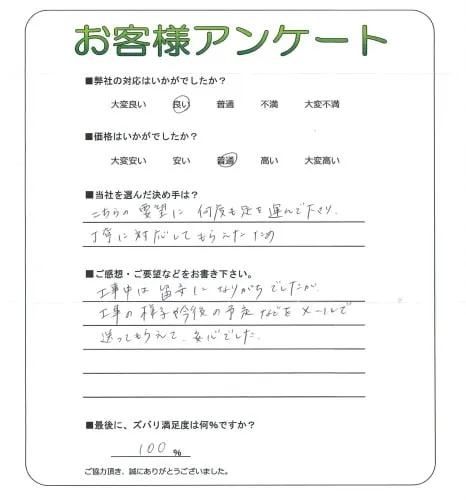 お客様アンケート
■弊社の対応はいかがでしたか？
大変良い 良い 普通 不満 大変不満
■価格はいかがでしたか？
大変安い 安い 普通 高い 大変高い
■当社を選んだ決め手は？
こちらの要望に何度も足を運んで下さり、
丁寧に対応してもらえたため
■ご感想・ご要望などをお書き下さい。
工事中は留守になりがちでしたが、
工事の様子や今後の予定などをメールで
送ってもらえて、安心でした。
■最後に、ズバリ満足度は何％ですか？
100 ％
ご協力頂き、誠にありがとうございました。